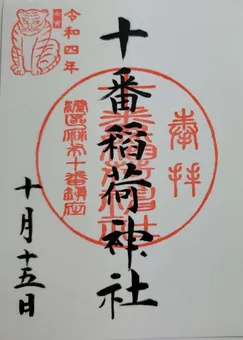 奉拝
十番稲荷神社
港区麻布十番鎮座
令和四年
十月十五日